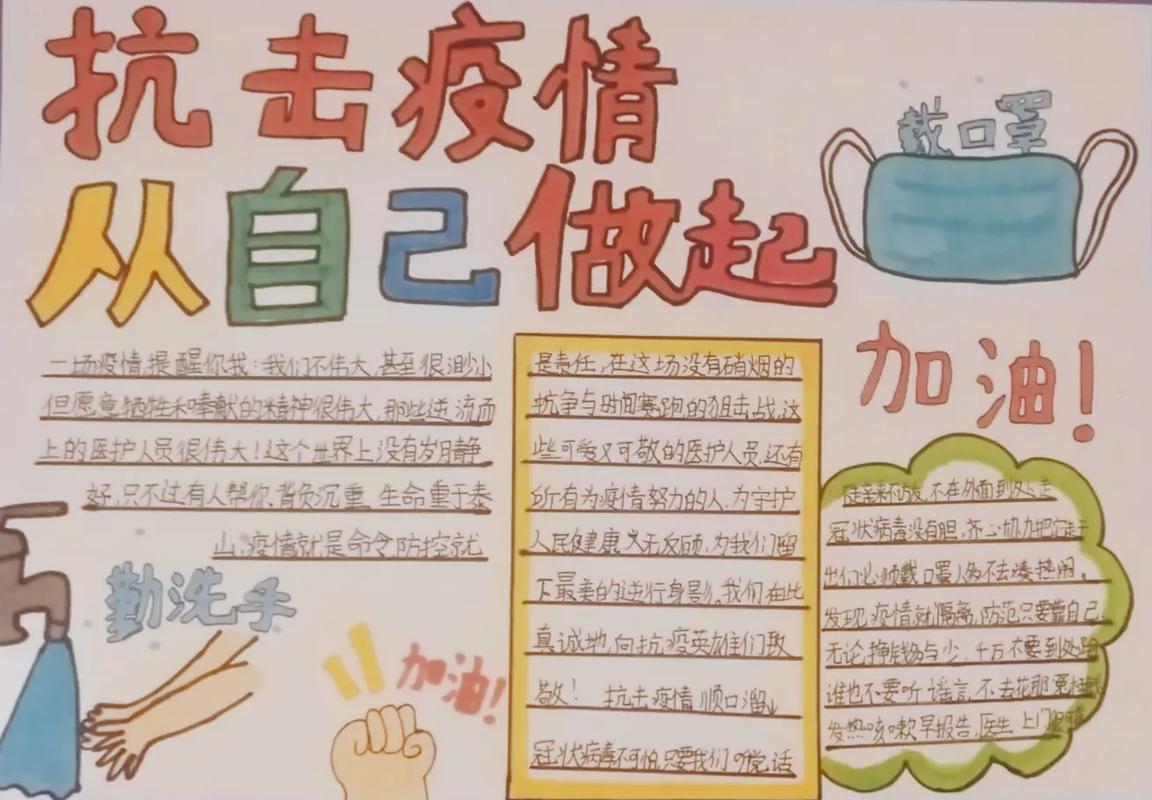 抗击疫情
从自己做起
戴口罩
一场疫情,提醒你我:我们不伟大,甚至很渺小
但愿意牺牲和奉献的精神很伟大,那些逆流而
上的医护人员很伟大!这个世界上没有岁月静
好,只不过有人帮你背负沉重,生命重于泰
山,疫情就是命令,防控就
是责任,在这场没有硝烟的
抗争与时间赛跑的狙击战,这
些可爱又可敬的医护人员,还有
所有为疫情努力的人,为守护
人民健康义无反顾,为我们留
下最美的逆行身影。我们在此
真诚地,向抗疫英雄们致
敬! 抗击疫情顺口溜
冠状病毒不可怕,只要我们听党话
加油!
不在外面到处走
冠状病毒没有胆,齐心协力把它赶
出门必须戴口罩人多不去凑热闹,
发现疫情就隔离,防范只要靠自己
无论挣钱多与少,千万不要到处跑
谁也不要听谣言,不去花那
发热咳嗽早报告,医生上门
勤洗手
加油!